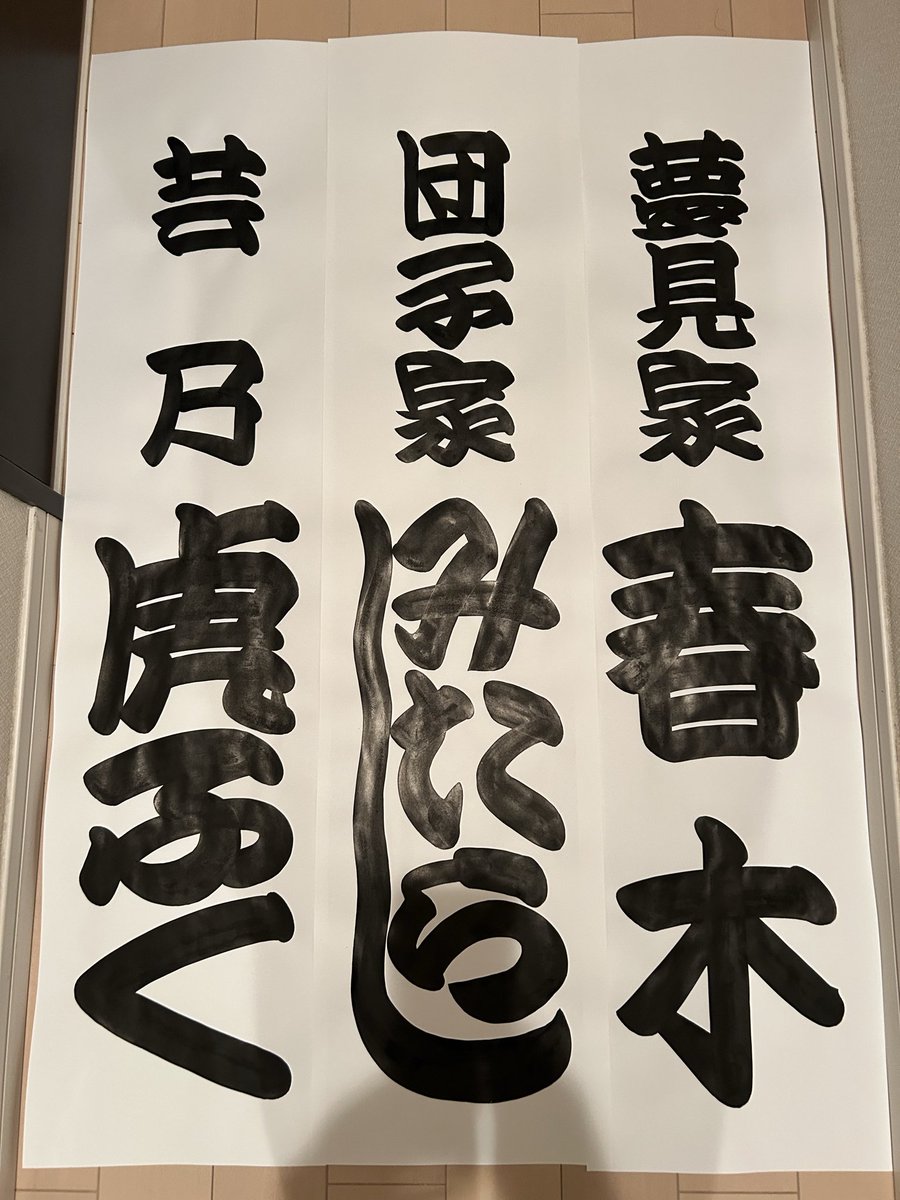 夢見家 春木
団子家 みたらし
芸乃 虎ふく